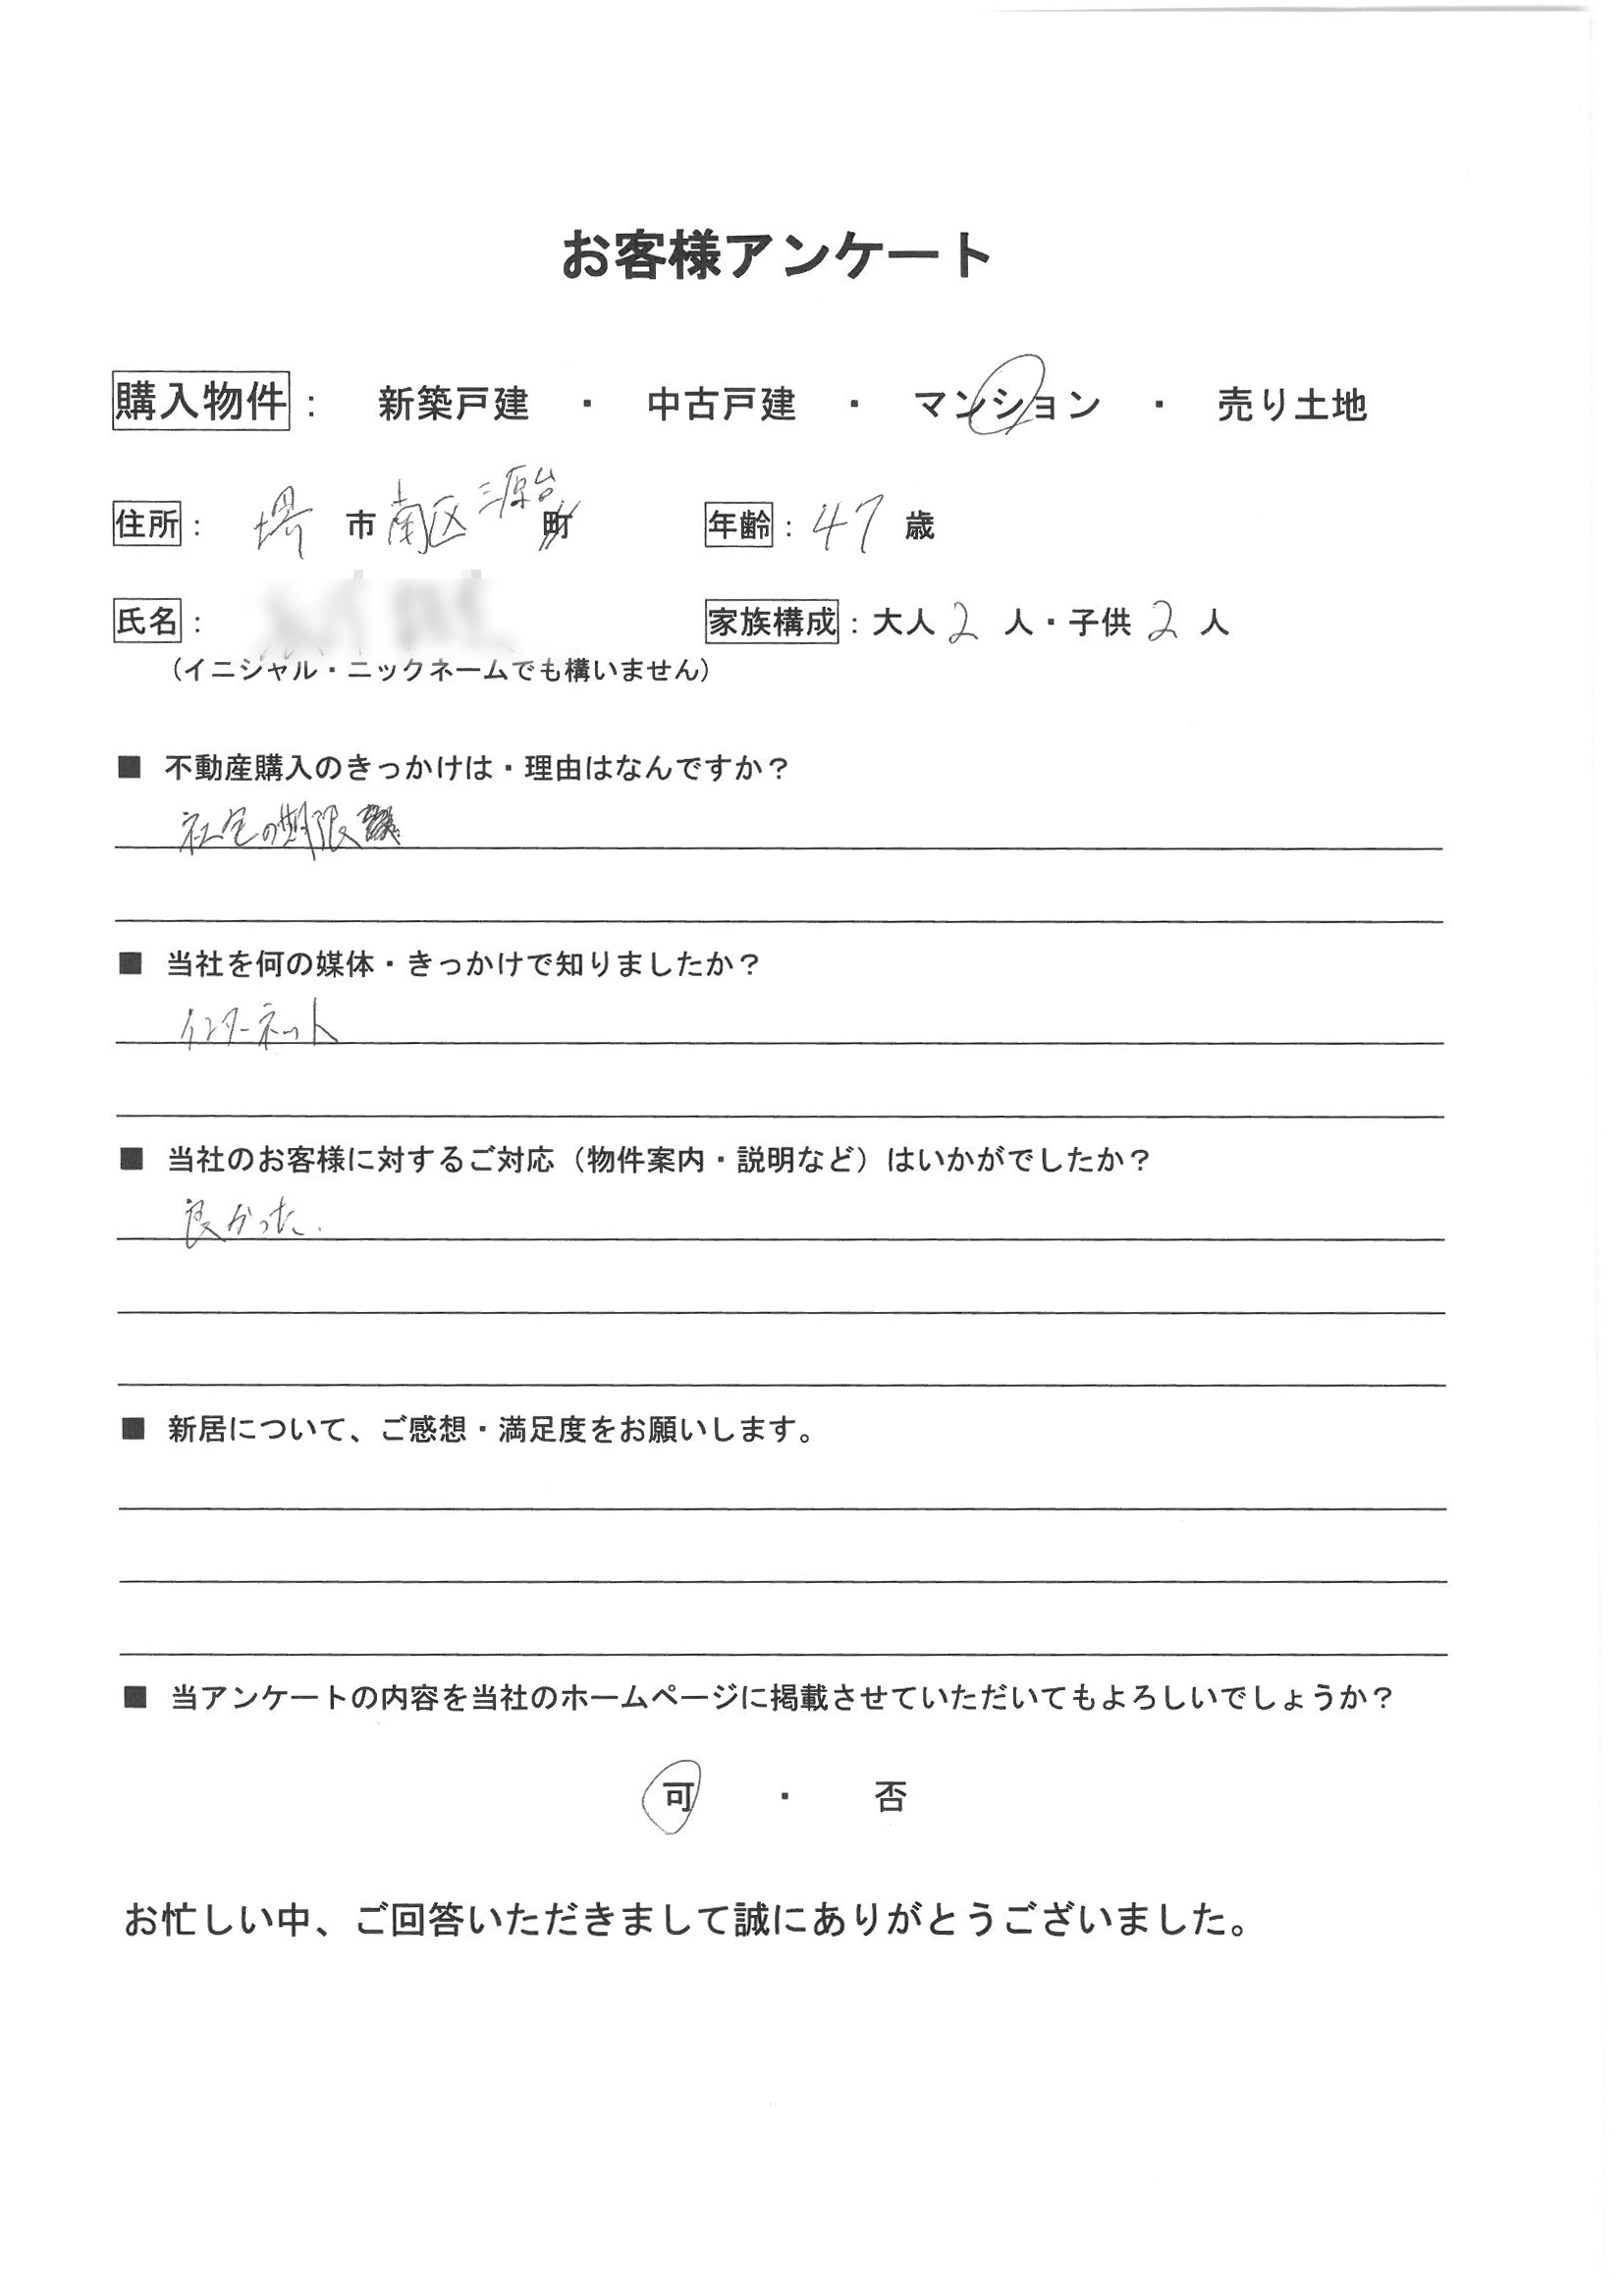 お客様アンケート
購入物件： 新築戸建 ・ 中古戸建 ・ マンション ・ 売り土地
住所： 堺 市 南区 三原台 町 年齢： 47 歳
氏名： 家族構成：大人 2 人・子供 2 人
（イニシャル・ニックネームでも構いません）
■ 不動産購入のきっかけは・理由はなんですか？
社宅の期限
■ 当社を何の媒体・きっかけで知りましたか？
インターネット
■ 当社のお客様に対するご対応（物件案内・説明など）はいかがでしたか？
良かった.
■ 新居について、ご感想・満足度をお願いします。
■ 当アンケートの内容を当社のホームページに掲載させていただいてもよろしいでしょうか？
可 ・ 否
お忙しい中、ご回答いただきまして誠にありがとうございました。